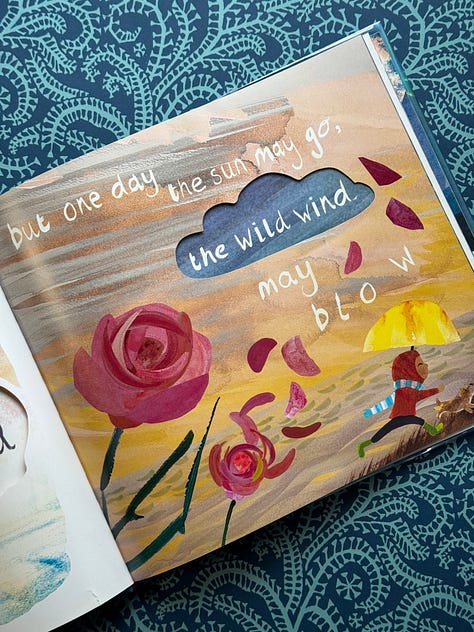 but one day the sun may go,
the wild wind
may
blow